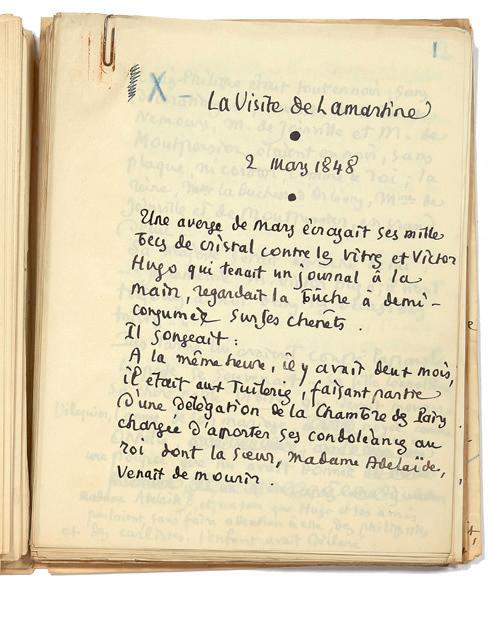 IX - La Visite de Lamartine
2 Mars 1848
Une averse de mars écrasait ses mille
becs de cristal contre les vitres et Victor
Hugo qui tenait un journal à la
main, regardait la bûche à demi-
consumée sur ses chenêts.
Il songeait :
A la même heure, il y avait deux mois,
il était aux Tuileries, faisant partie
d'une délégation de la Chambre des Pairs
chargée d'apporter ses condoléances au
roi dont la sœur, madame Adelaïde,
venait de mourir.